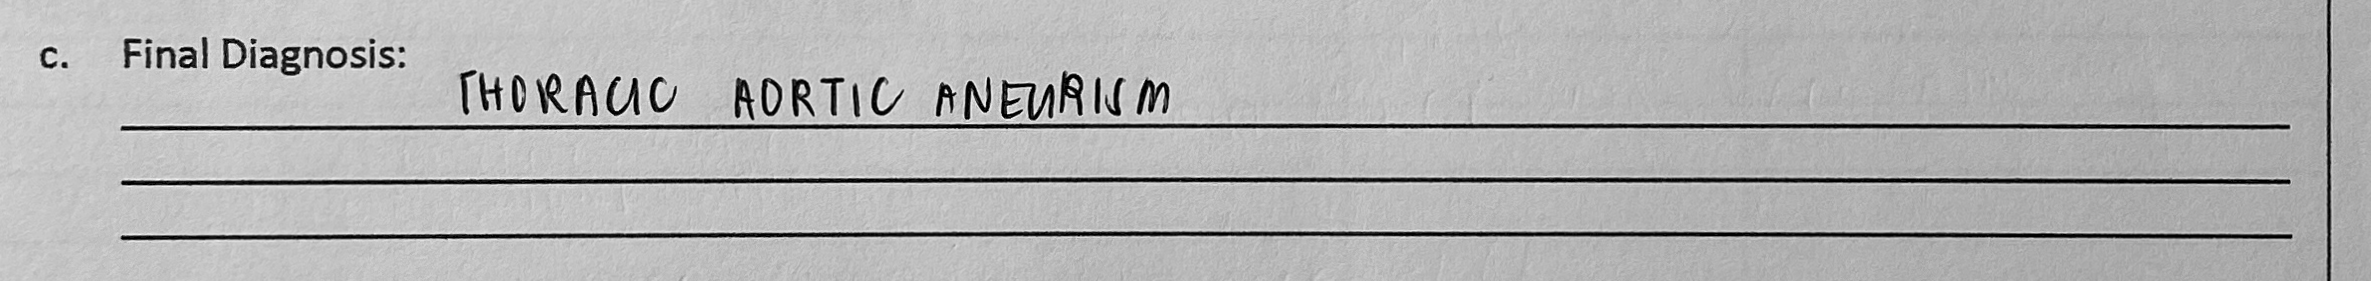 c. Final Diagnosis:
THORACIC AORTIC ANEURISM